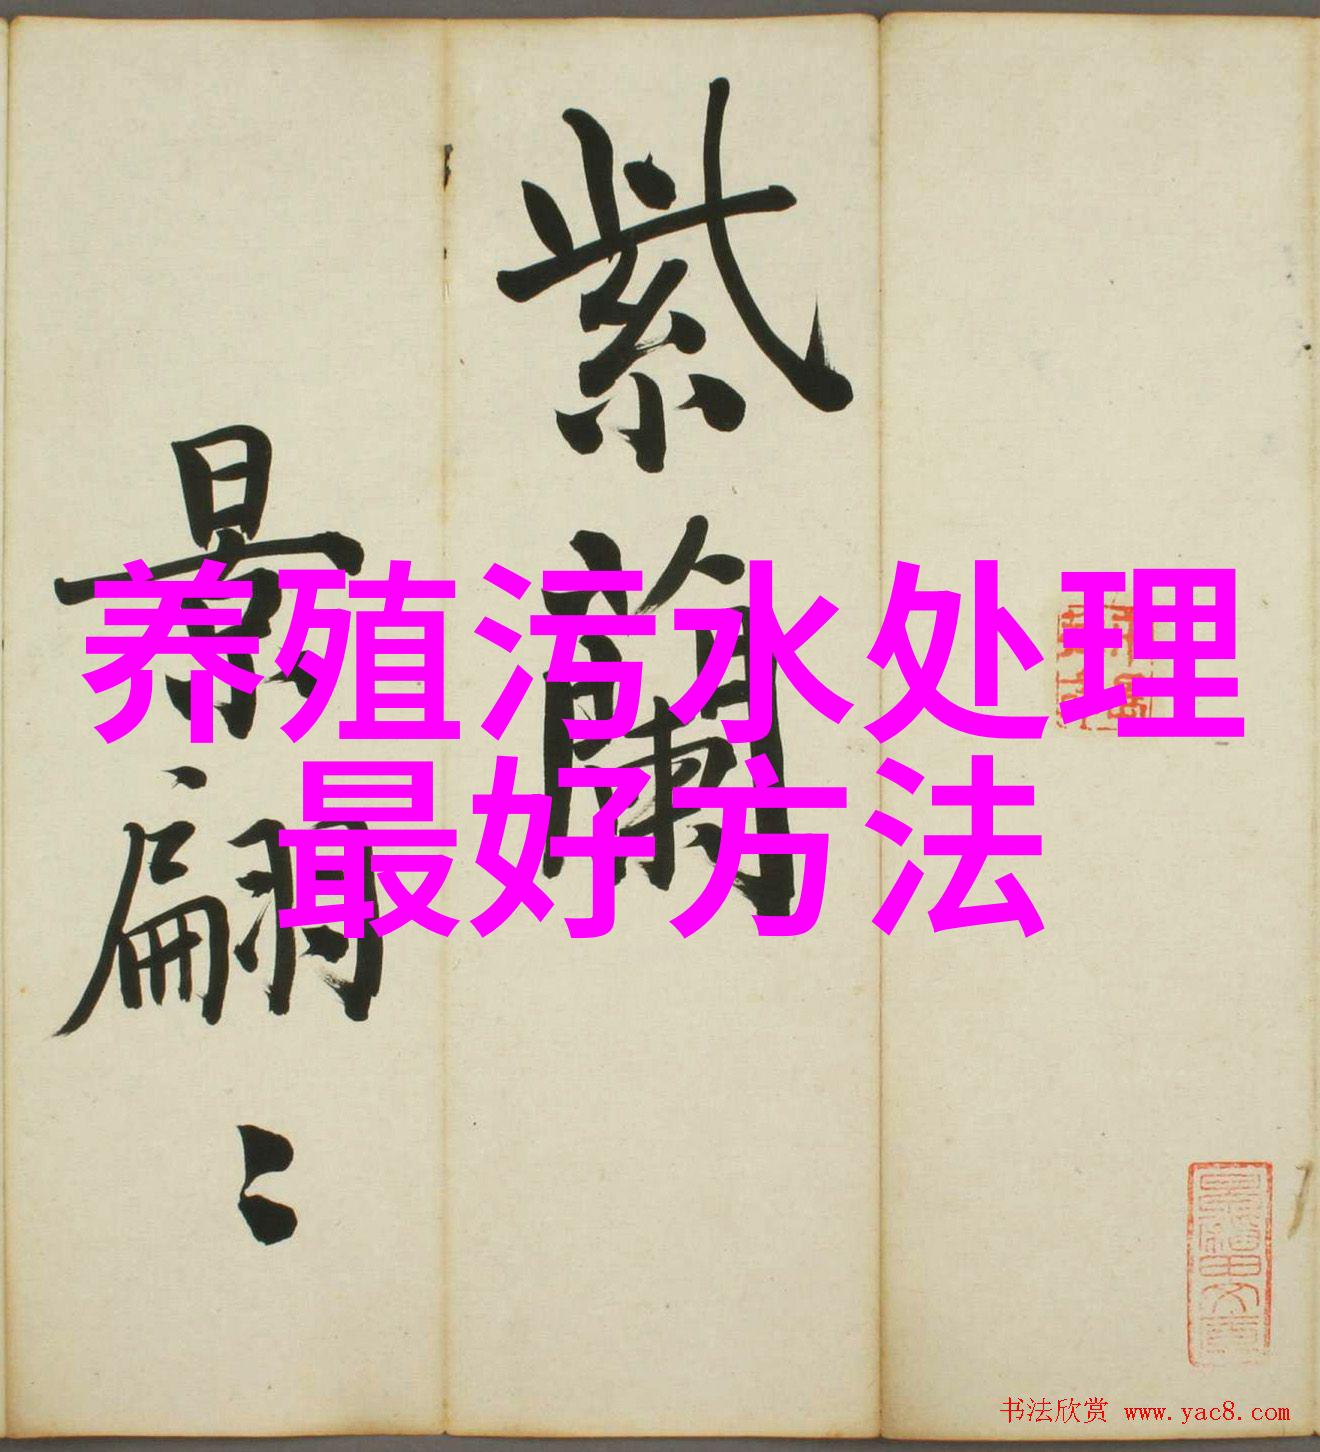 紫蘭
景翩〻
养殖污水处理
最好方法
书法欣赏 www.yac8.com